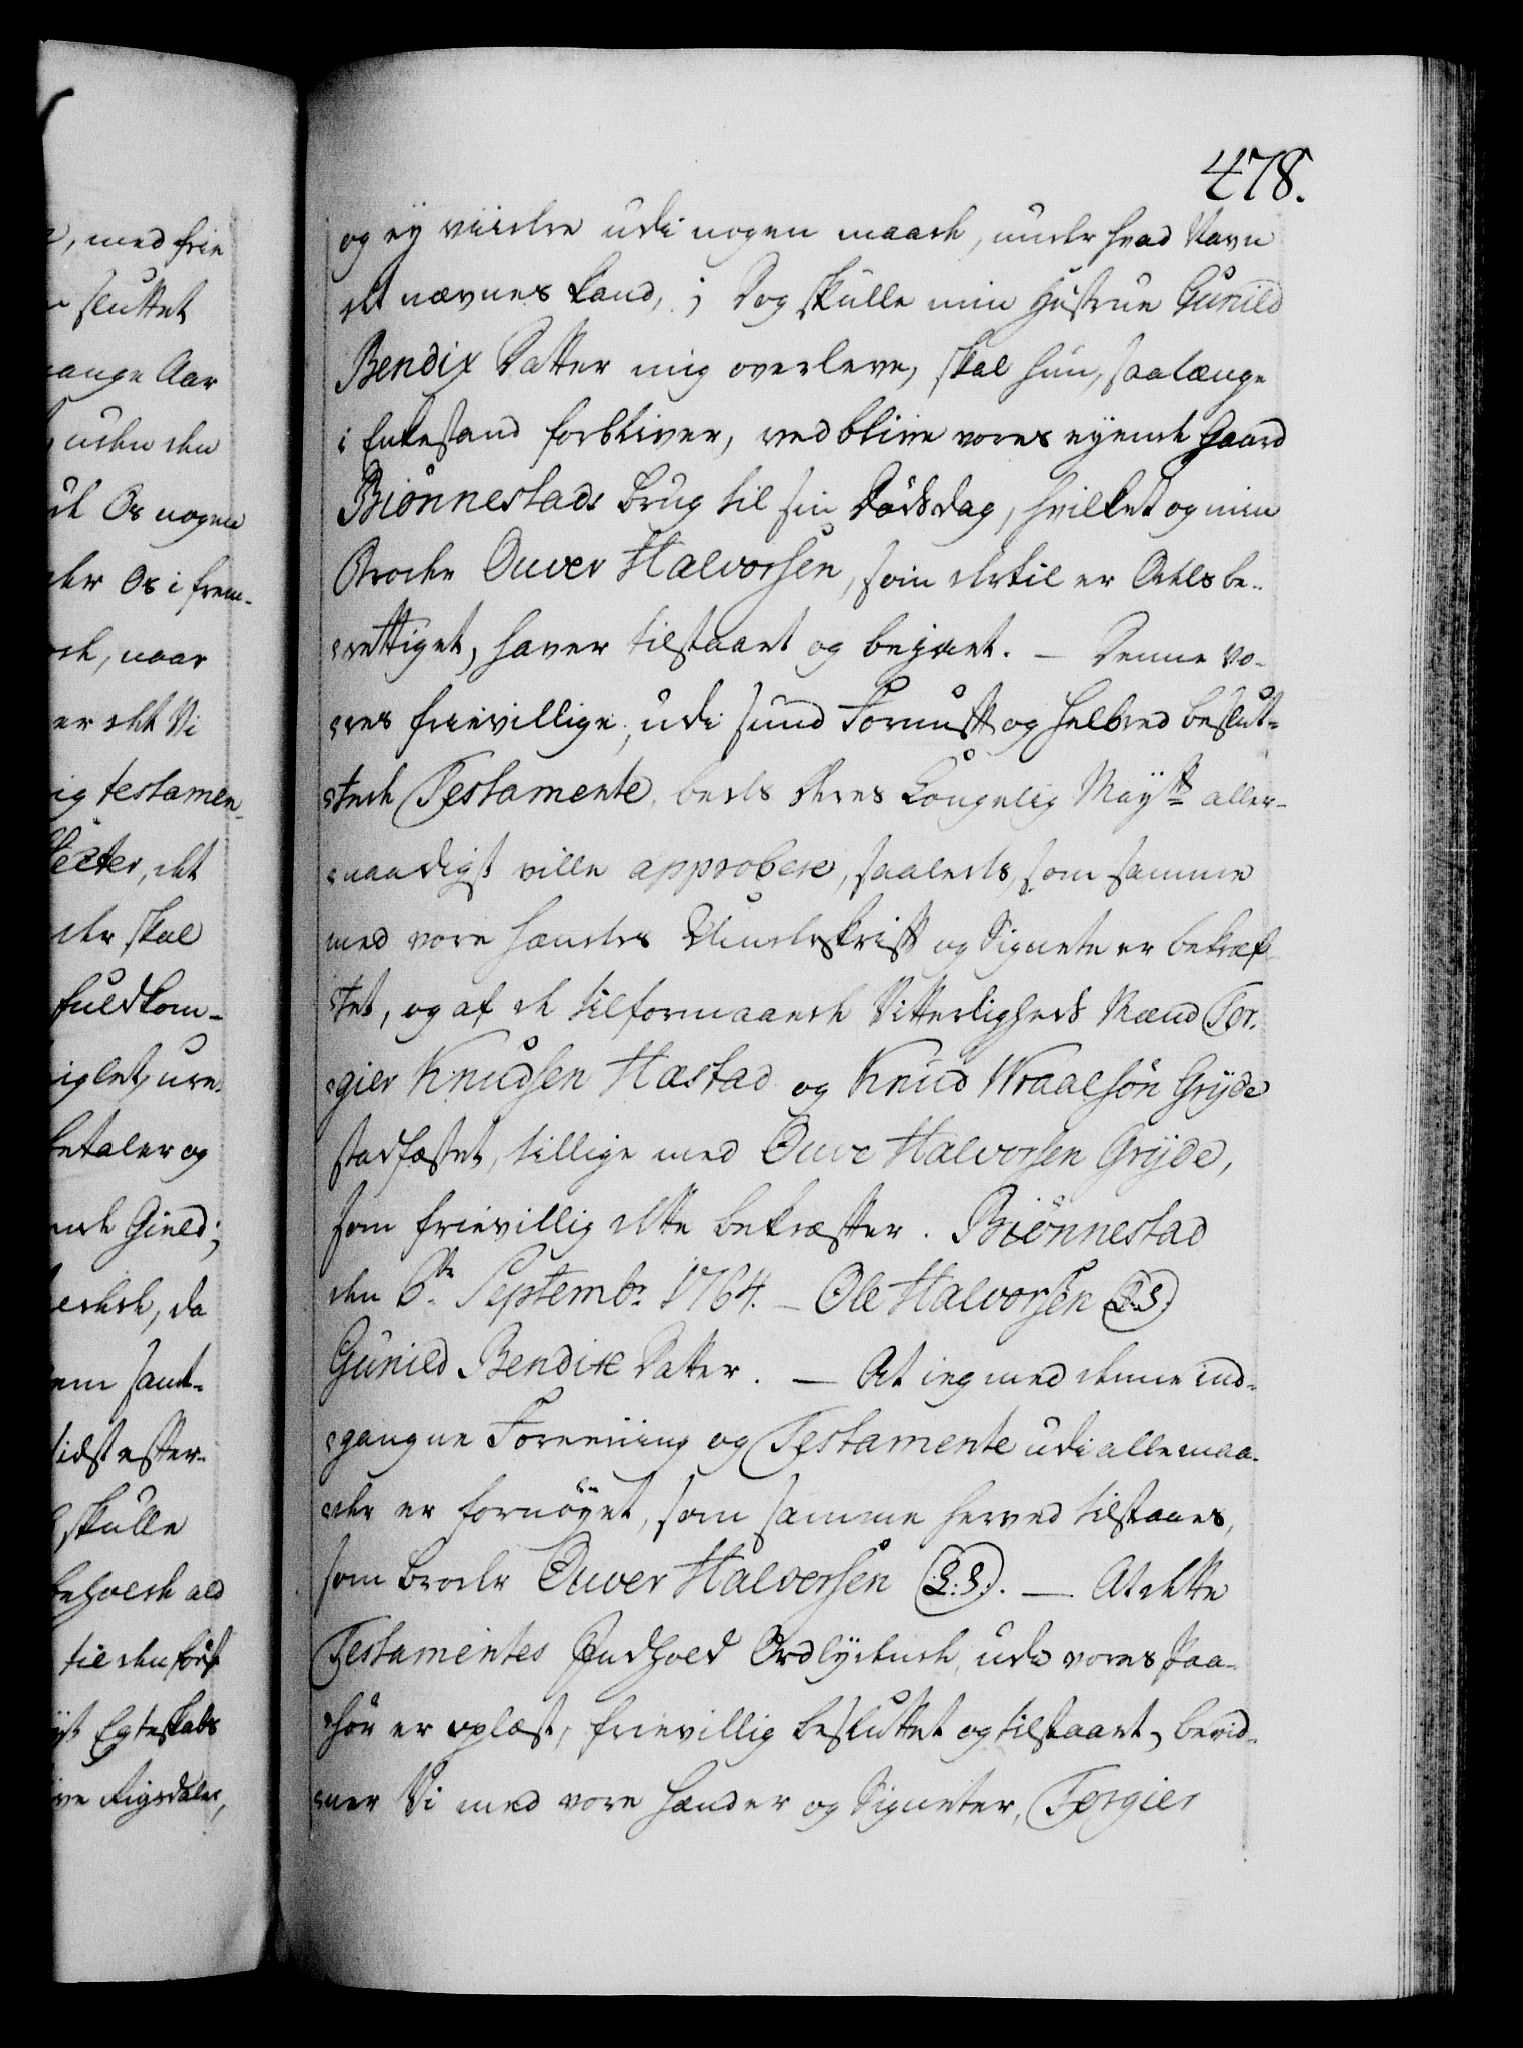 478.
og ey viidere udi nogen maade, under hvad Navn
det nævnes kand, ; Dog skulle min Hustrue Gunild
Bendix Datter mig overleve, skal hun, saalænge
i Enkestand forbliver, ved blive vores eyende Gaard
Biönnestads brug til sin Dödsdag, hvilket og min
Broder Ouver Halvorsen, som dertil er Odels be-
rettiget, haver tilstaaet og bejaet. – Denne vo-
res frievillige, udi sund Fornuft og Helbred beslut-
tede Testamente, beds Deres Kongelig Mayts aller-
naadigst ville approbere, saaleds, som samme
med vore Hænders Underskrift og Signete er bekræf-
tet, og af de tilformaaede Vitterligheds Mænd Tor-
gier Knudsen Hæstad og Knud Wraalsön Gryde
stadfæstet, tillige med Ouve Halvorsen Gryde,
som frievillig dette bekræfter. Biönnestad
den 6te Septembr 1764. – Ole Halvorsen (L.S.)
Gunild Bendix Datter. – At ieg med denne ind-
gangne Foreening og Testamente udi alle maa-
der er fornöyet, som samme herved tilstaaes,
som broder Ouver Halvorsen (L:S:). – At dette
Testamentes Indhold Ordlydende, udi vores Paa-
hör er oplæst, frievillig besluttet og tilstaaet, bevid-
ner Vi med vore Hænder og Signeter, Torgier
med frie
sluttet
mange Aar
uden den
Os nogen
Os i frem-
naar
er det Vi
testamen-
det
der skal
fuldkom-
betaler og
Gield;
da
sidst efter-
skulle
beholde ald
til den först
Egteskabs
Rigsdaler,